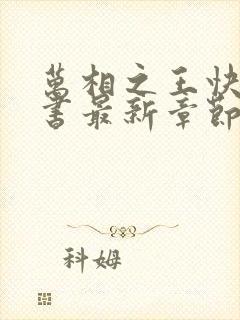 萬相之王快
書最新章節
科姆